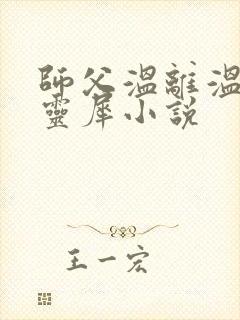 師父溫離溫
靈犀小說
王一宏